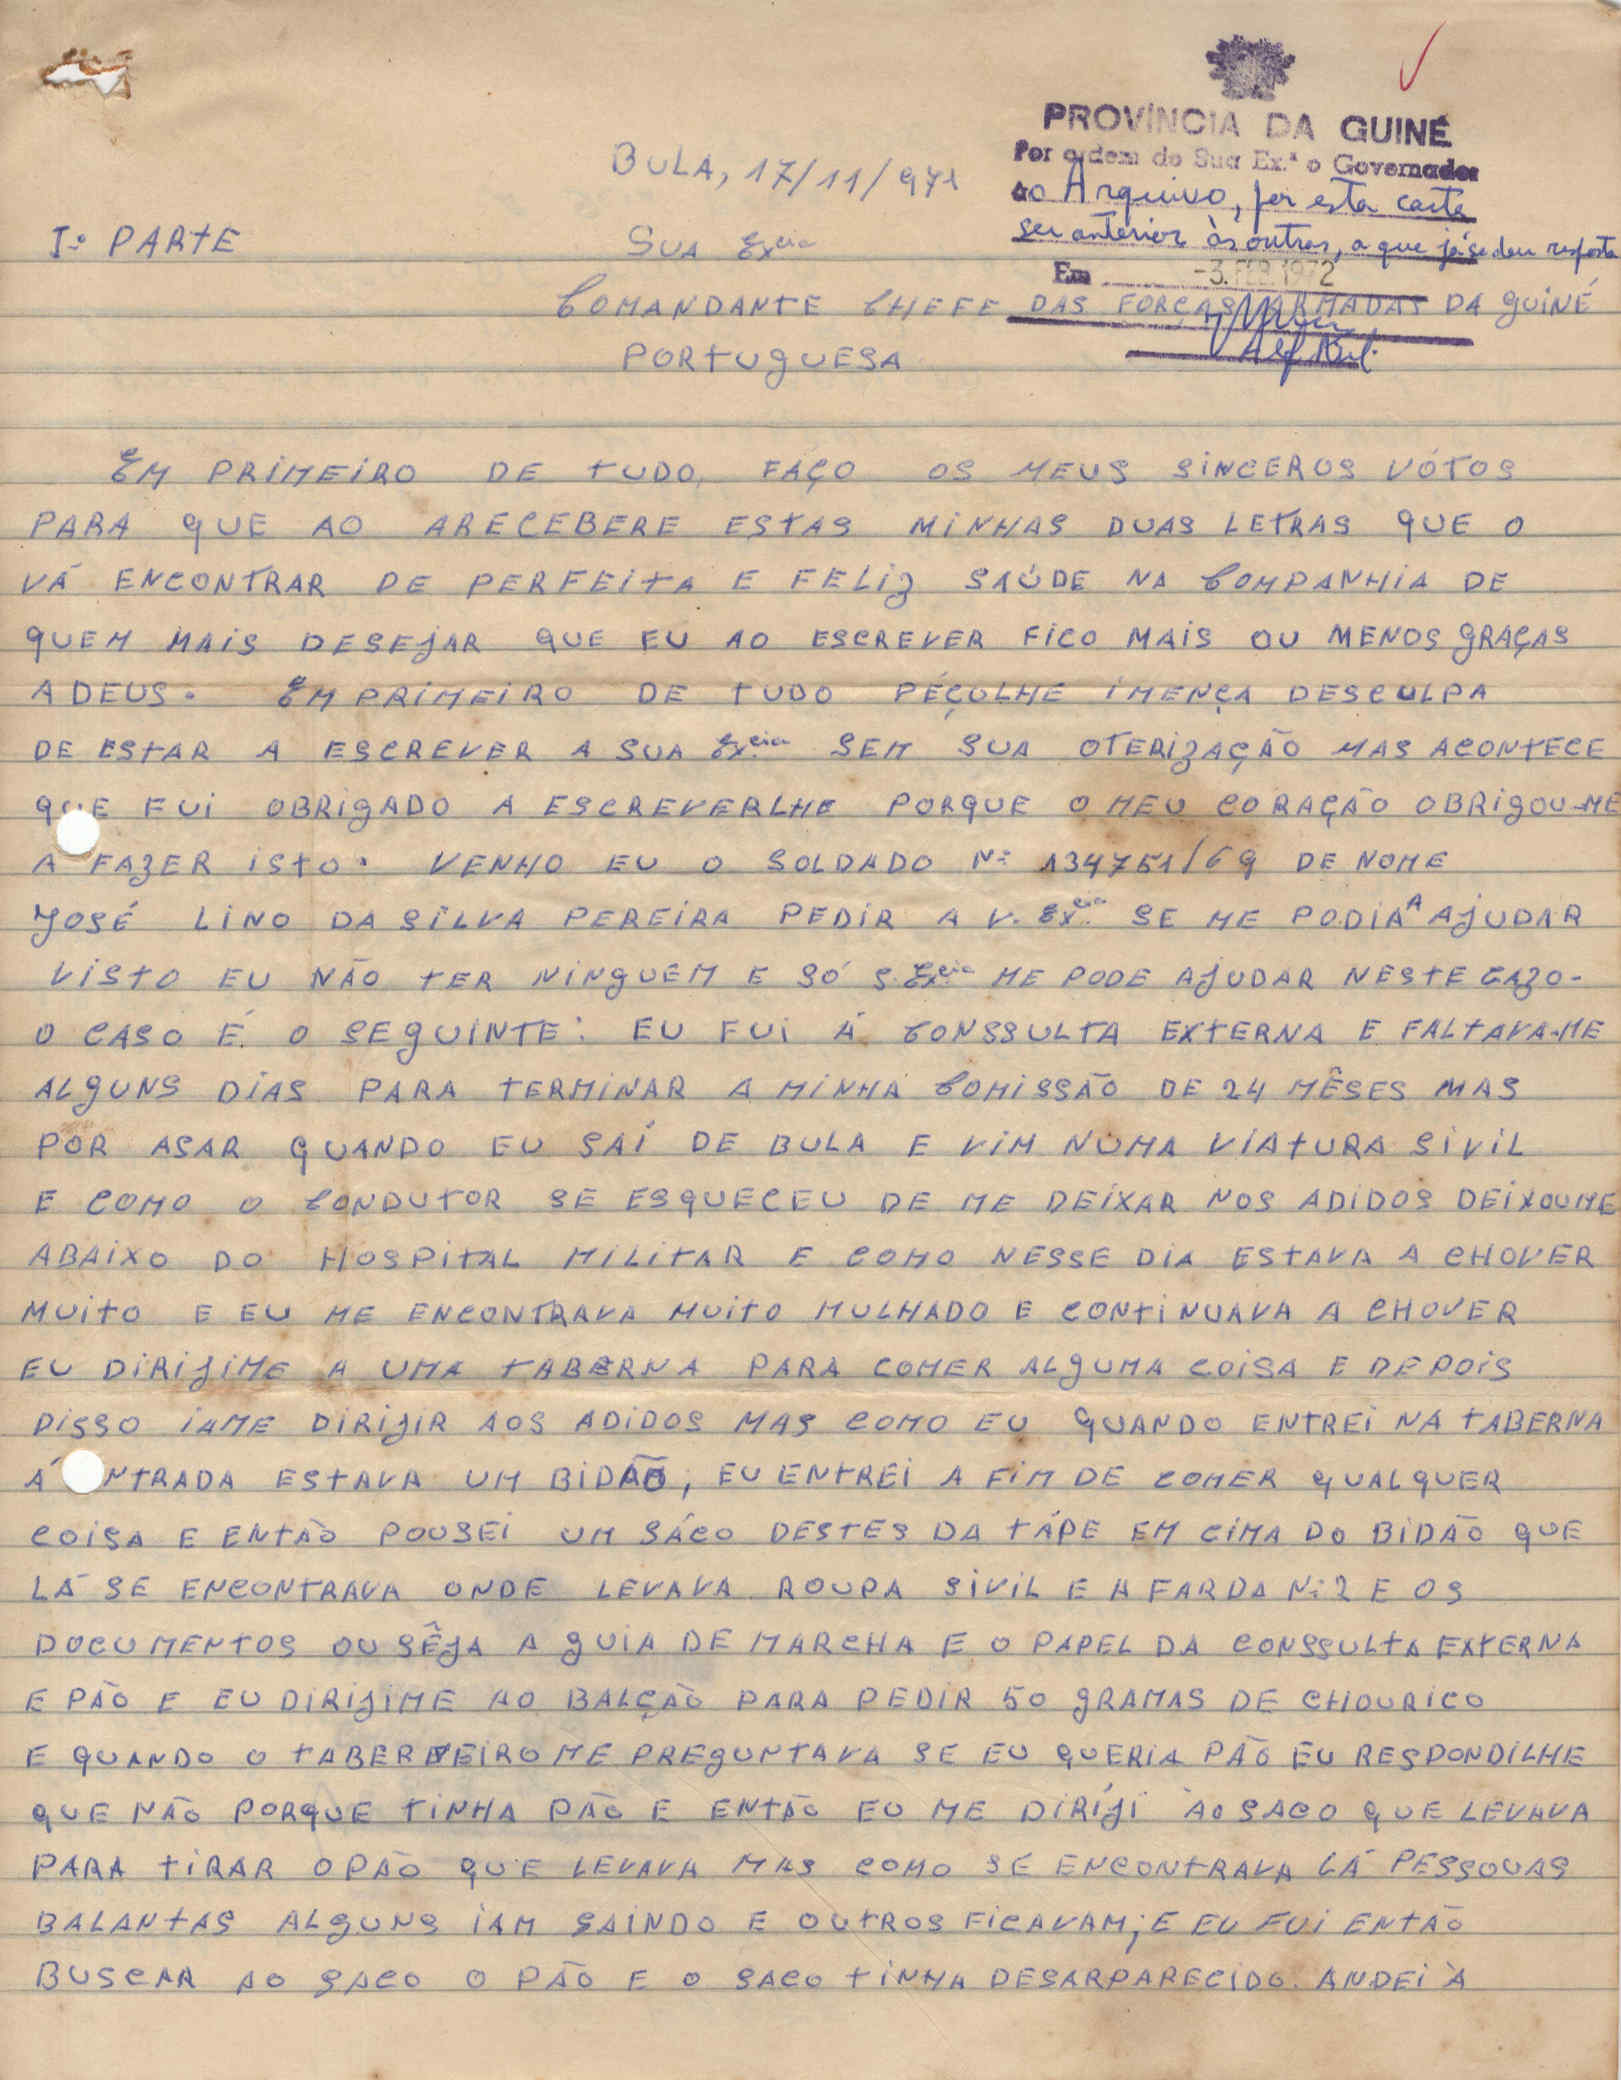 PROVÍNCIA DA GUINÉ
Por ordem de Sua Ex.ª o Governador
ao Arquivo, por esta carta
ser anterior às outras, a que já se deu resposta
Em -3. FEB. 1972
BULA, 17/11/971
Iº PARTE
SUA Excia
COMANDANTE CHEFE DAS FORÇAS ARMADAS DA GUINÉ
PORTUGUESA
EM PRIMEIRO DE TUDO, FAÇO OS MEUS SINCEROS VÓTOS
PARA QUE AO ARECEBERE ESTAS MINHAS DUAS LETRAS QUE O
VÁ ENCONTRAR DE PERFEITA E FELIZ SAÚDE NA COMPANHIA DE
QUEM MAIS DESEJAR QUE EU AO ESCREVER FICO MAIS OU MENOS GRAÇAS
A DEUS. EM PRIMEIRO DE TUDO PÉÇOLHE IMENÇA DESCULPA
DE ESTAR A ESCREVER A SUA Ex.cia SEM SUA OTERIZAÇÃO MAS ACONTECE
QUE FUI OBRIGADO A ESCREVERLHE PORQUE O MEU CORAÇÃO OBRIGOU-ME
A FAZER ISTO. VENHO EU O SOLDADO Nº 134751/69 DE NOME
JOSÉ LINO DA SILVA PEREIRA PEDIR A V. Ex.cia SE ME PODIA A AJUDAR
VISTO EU NÃO TER NINGUEM E SÓ S. Ex.cia ME PODE AJUDAR NESTE CAZO-
O CASO É O SEGUINTE: EU FUI Á CONSSULTA EXTERNA E FALTAVA-ME
ALGUNS DIAS PARA TERMINAR A MINHA COMISSÃO DE 24 MÊSES MAS
POR ASAR QUANDO EU SAÍ DE BULA E VIM NUMA VIATURA SIVIL
E COMO O CONDUTOR SE ESQUECEU DE ME DEIXAR NOS ADIDOS DEIXOUME
ABAIXO DO HOSPITAL MILITAR E COMO NESSE DIA ESTAVA A CHOVER
MUITO E EU ME ENCONTRAVA MUITO MULHADO E CONTINUAVA A CHOVER
EU DIRIJIME A UMA TABERNA PARA COMER ALGUMA COISA E DEPOIS
DISSO IAME DIRIJIR AOS ADIDOS MAS COMO EU QUANDO ENTREI NA TABERNA
Á NTRADA ESTAVA UM BIDÃO, EU ENTREI A FIM DE COMER QUALQUER
COISA E ENTÃO POUSEI UM SÁCO DESTES DA TÁPE EM CIMA DO BIDÃO QUE
LÁ SE ENCONTRAVA ONDE LEVAVA ROUPA SIVIL E A FARDA Nº 2 E OS
DOCUMENTOS OU SÊJA A GUIA DE MARCHA E O PAPEL DA CONSSULTA EXTERNA
E PÃO E EU DIRIJIME AO BALÇÃO PARA PEDIR 50 GRAMAS DE CHOURICO
E QUANDO O TABERNEIRO ME PREGUNTAVA SE EU QUERIA PÃO EU RESPONDILHE
QUE NÃO PORQUE TINHA PÃO E ENTÃO EU ME DIRÍJI ÀO SACO QUE LEVAVA
PARA TIRAR O PÃO QUE LEVAVA MAS COMO SE ENCONTRAVA LÁ PESSOUAS
BALANTAS ALGUNS IAM SAINDO E OUTROS FICAVAM; E EU FUI ENTÃO
BUSCAR AO SACO O PÃO E O SACO TINHA DESARPARECIDO. ANDEI À